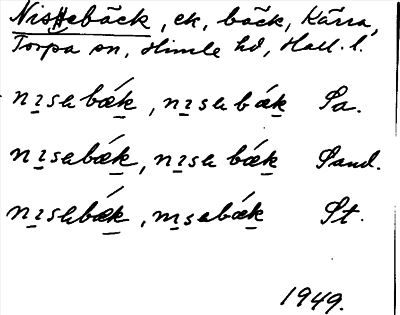 Nissebäck, ek, bäck, Kärra,
Torpa sn, Himle hd, Hall. l.
nɪsəbǽk, nɪsəbǽk, Sa.
nɪsəbǽk, nɪsəbǽk Sand.
nɪsəbǽk, nɪsəbǽk St.
1949.